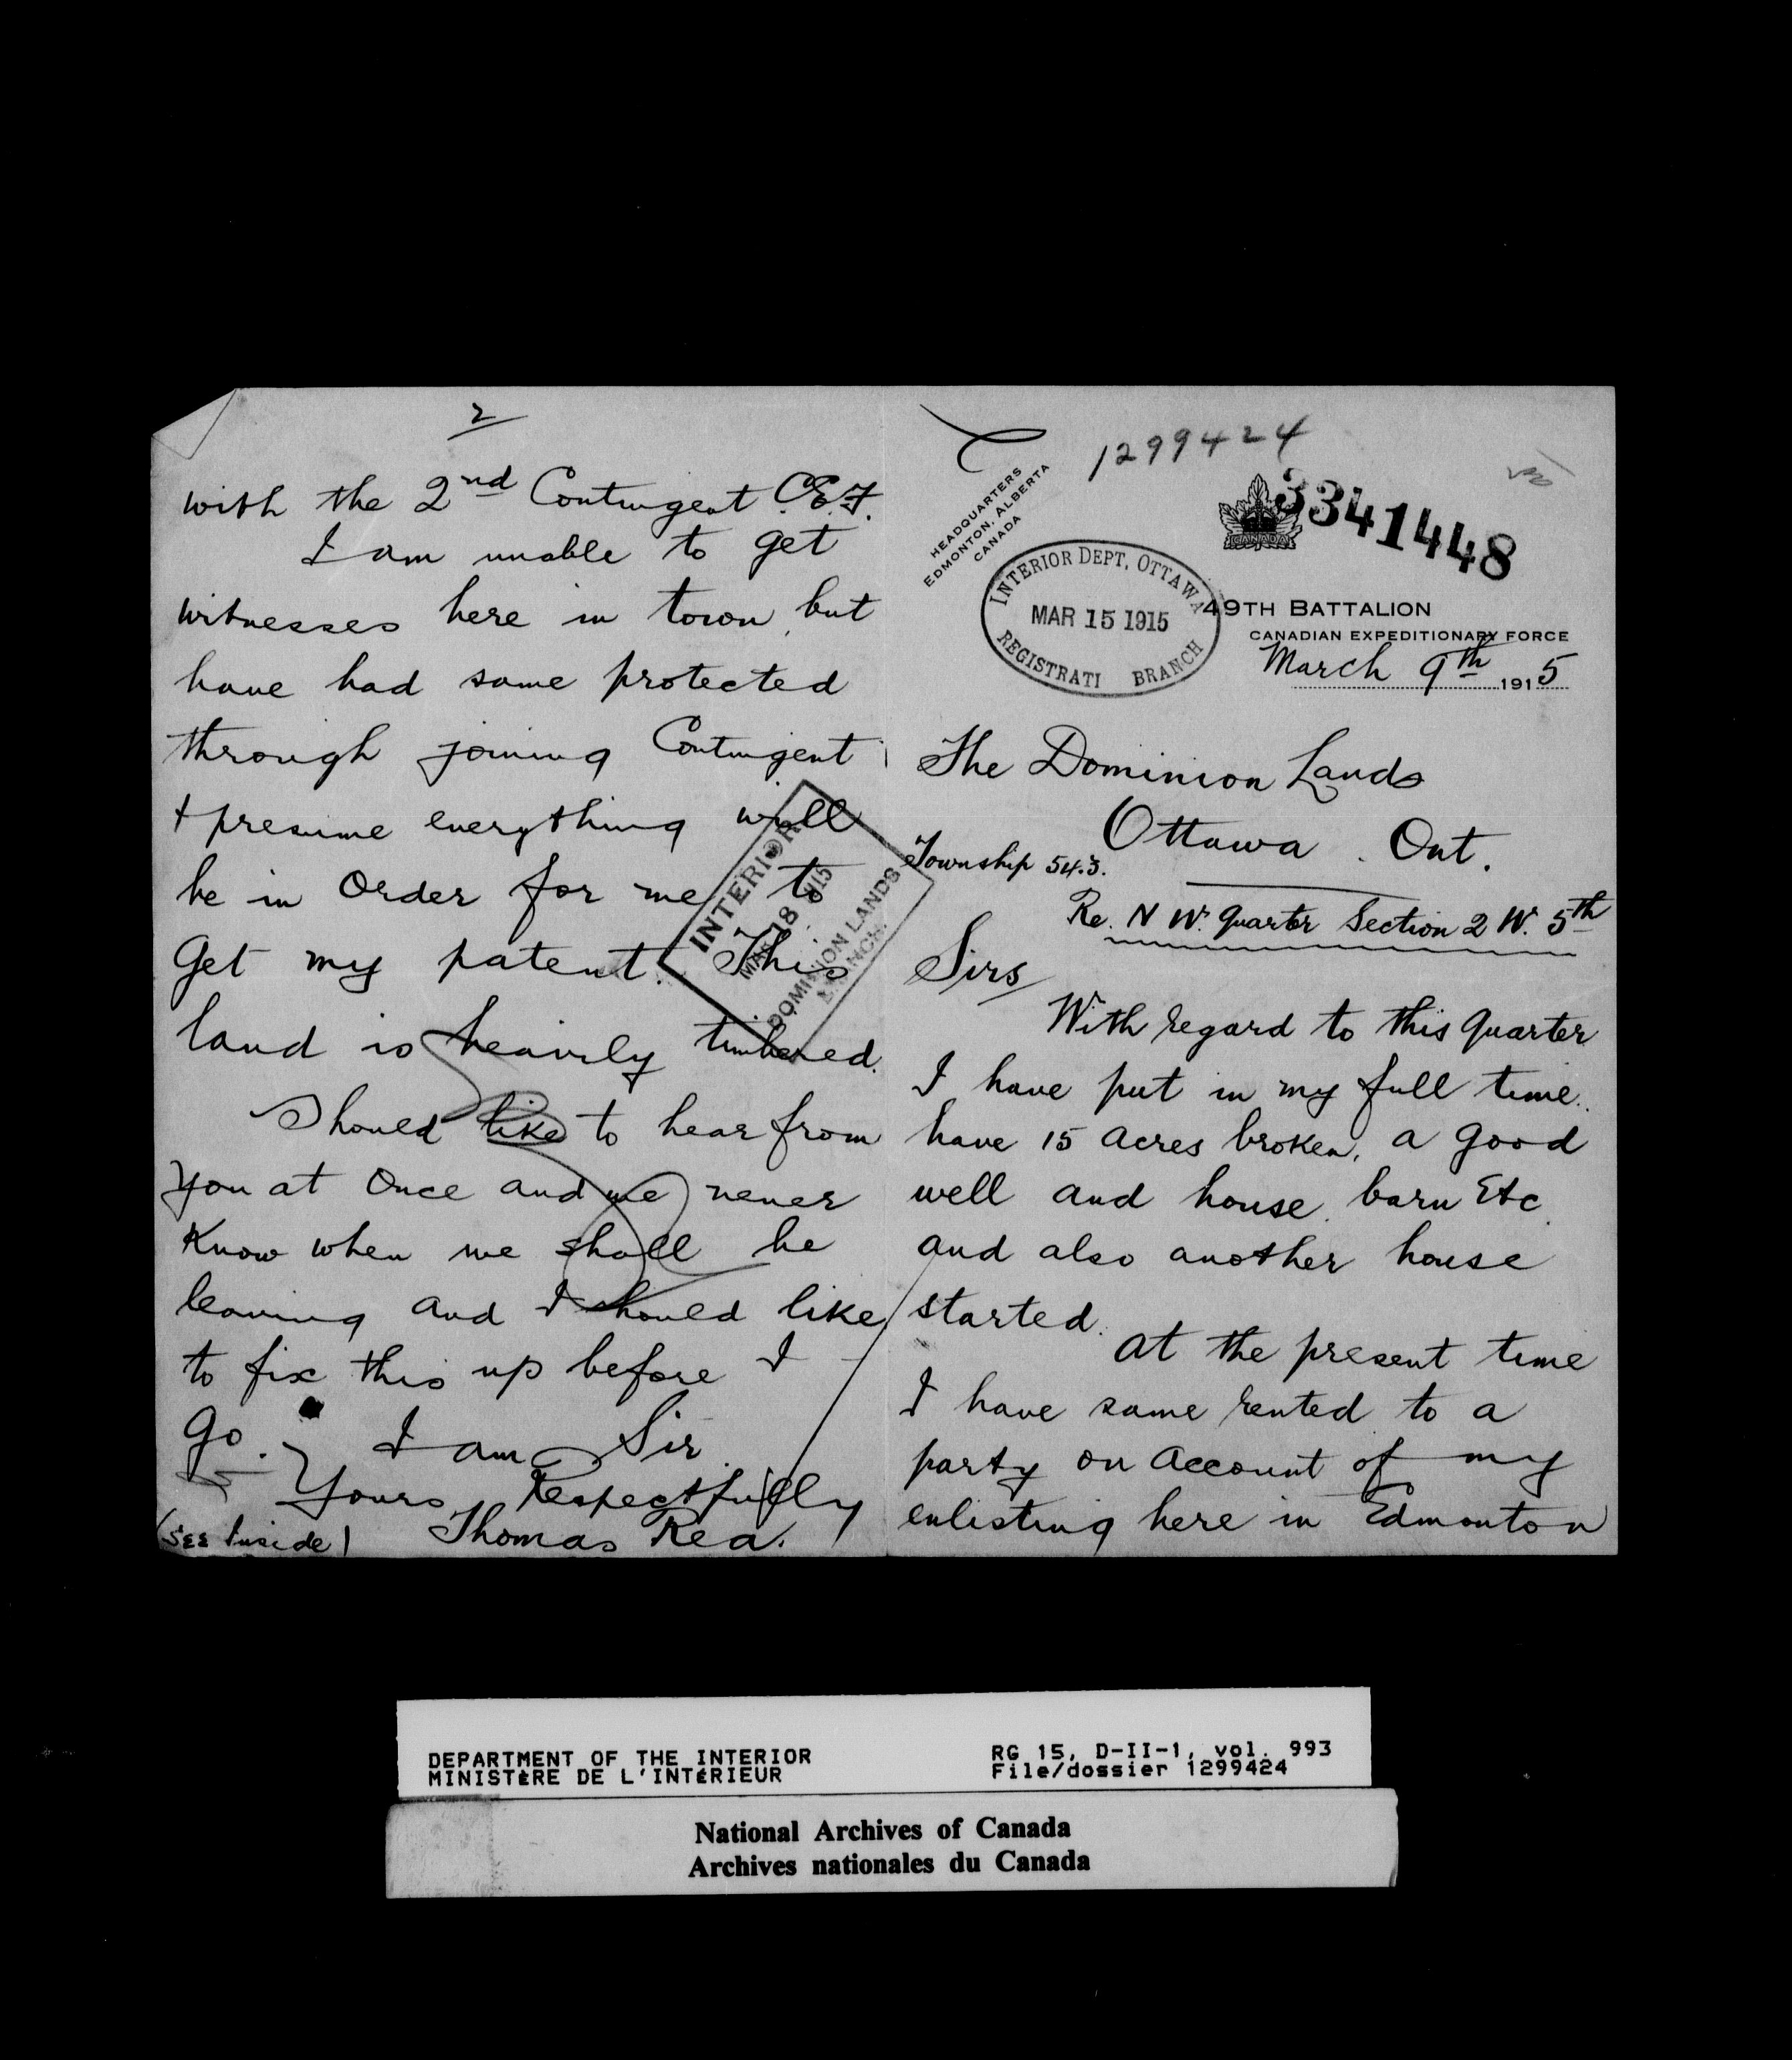 1299424
3341448
HEADQUARTERS
EDMONTON, ALBERTA
CANADA
CANADA
INTERIOR DEPT. OTTAWA
MAR 15 1915
REGISTRATI BRANCH
49TH BATTALION
CANADIAN EXPEDITIONARY FORCE
March 9th 1915
The Dominion Lands
Ottawa. Ont.
Township 54.3.
Re. N W. Quarter Section 2 W. 5th
Sirs
With regard to this Quarter
I have put in my full time.
have 15 acres broken, a good
well and house, barn Etc.
and also another house
started.
At the present time
I have same rented to a
party on account of my
enlisting here in Edmonton
2
with the 2nd Contingent C.E.F.
I am unable to get
witnesses here in town, but
have had same protected
through joining Contingent
+ presume everything will
be in Order for me to
get my patent. This
land is heavily timbered.
Should like to hear from
you at Once and we never
Know when we shall be
leaving and I should like
to fix this up before I
go.
I am Sir
Yours Respectfully
Thomas Rea.
(SEE Inside)
INTERIOR
MAR 18 1915
DOMINION LANDS
BRANCH.
DEPARTMENT OF THE INTERIOR
MINISTÈRE DE L'INTÉRIEUR
RG 15, D-II-1, vol. 993
File/dossier 1299424
National Archives of Canada
Archives nationales du Canada